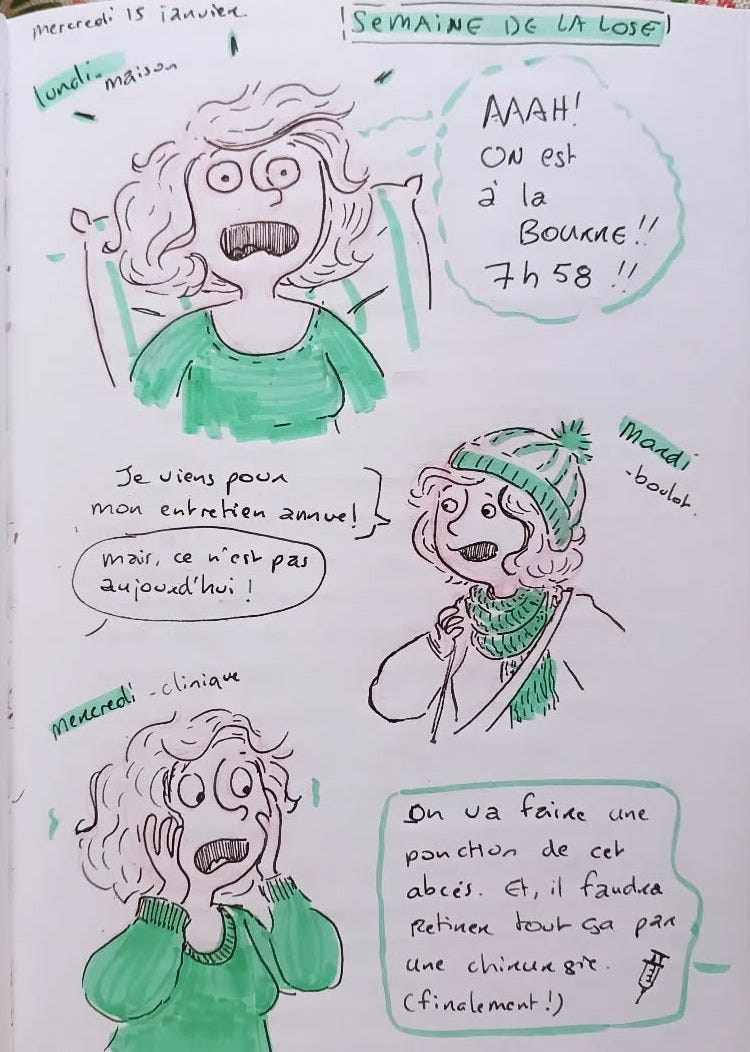 mercredi 15 janvier
SEMAINE DE LA LOSE
lundi - maison
AAAH!
ON est
à la
BOURRE!!
7h58!!
Mardi
- boulot.
Je viens pour
mon entretien annuel
mais, ce n'est pas
aujourd'hui!
mercredi - clinique
On va faire une
ponction de cet
abcés. Et, il faudra
retirer tout ça par
une chirurgie.
(finalement!)